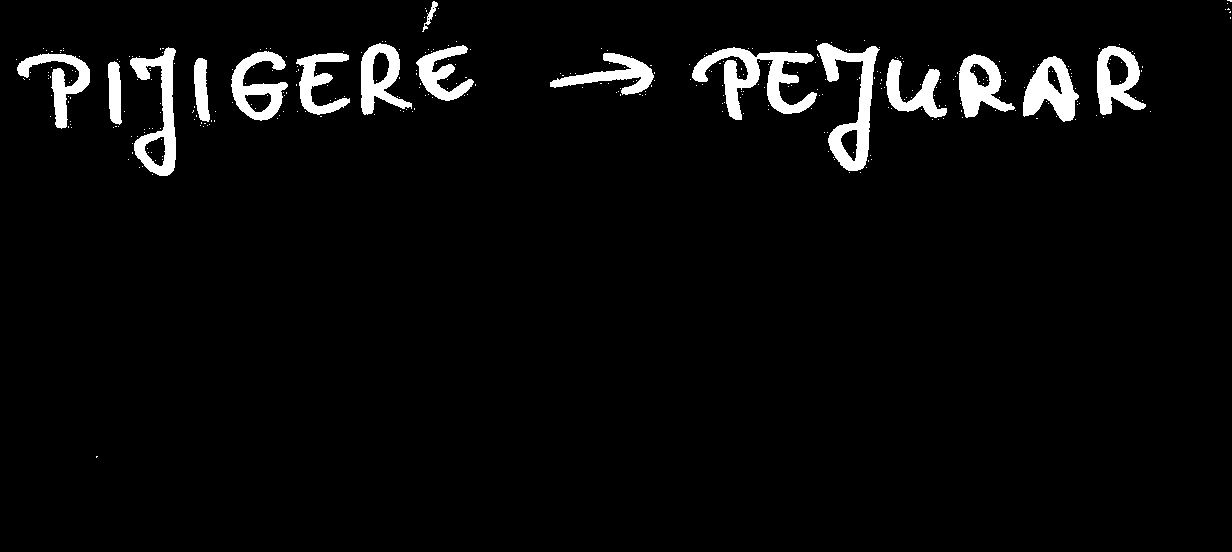 PIJIGERÉ → PEJURAR